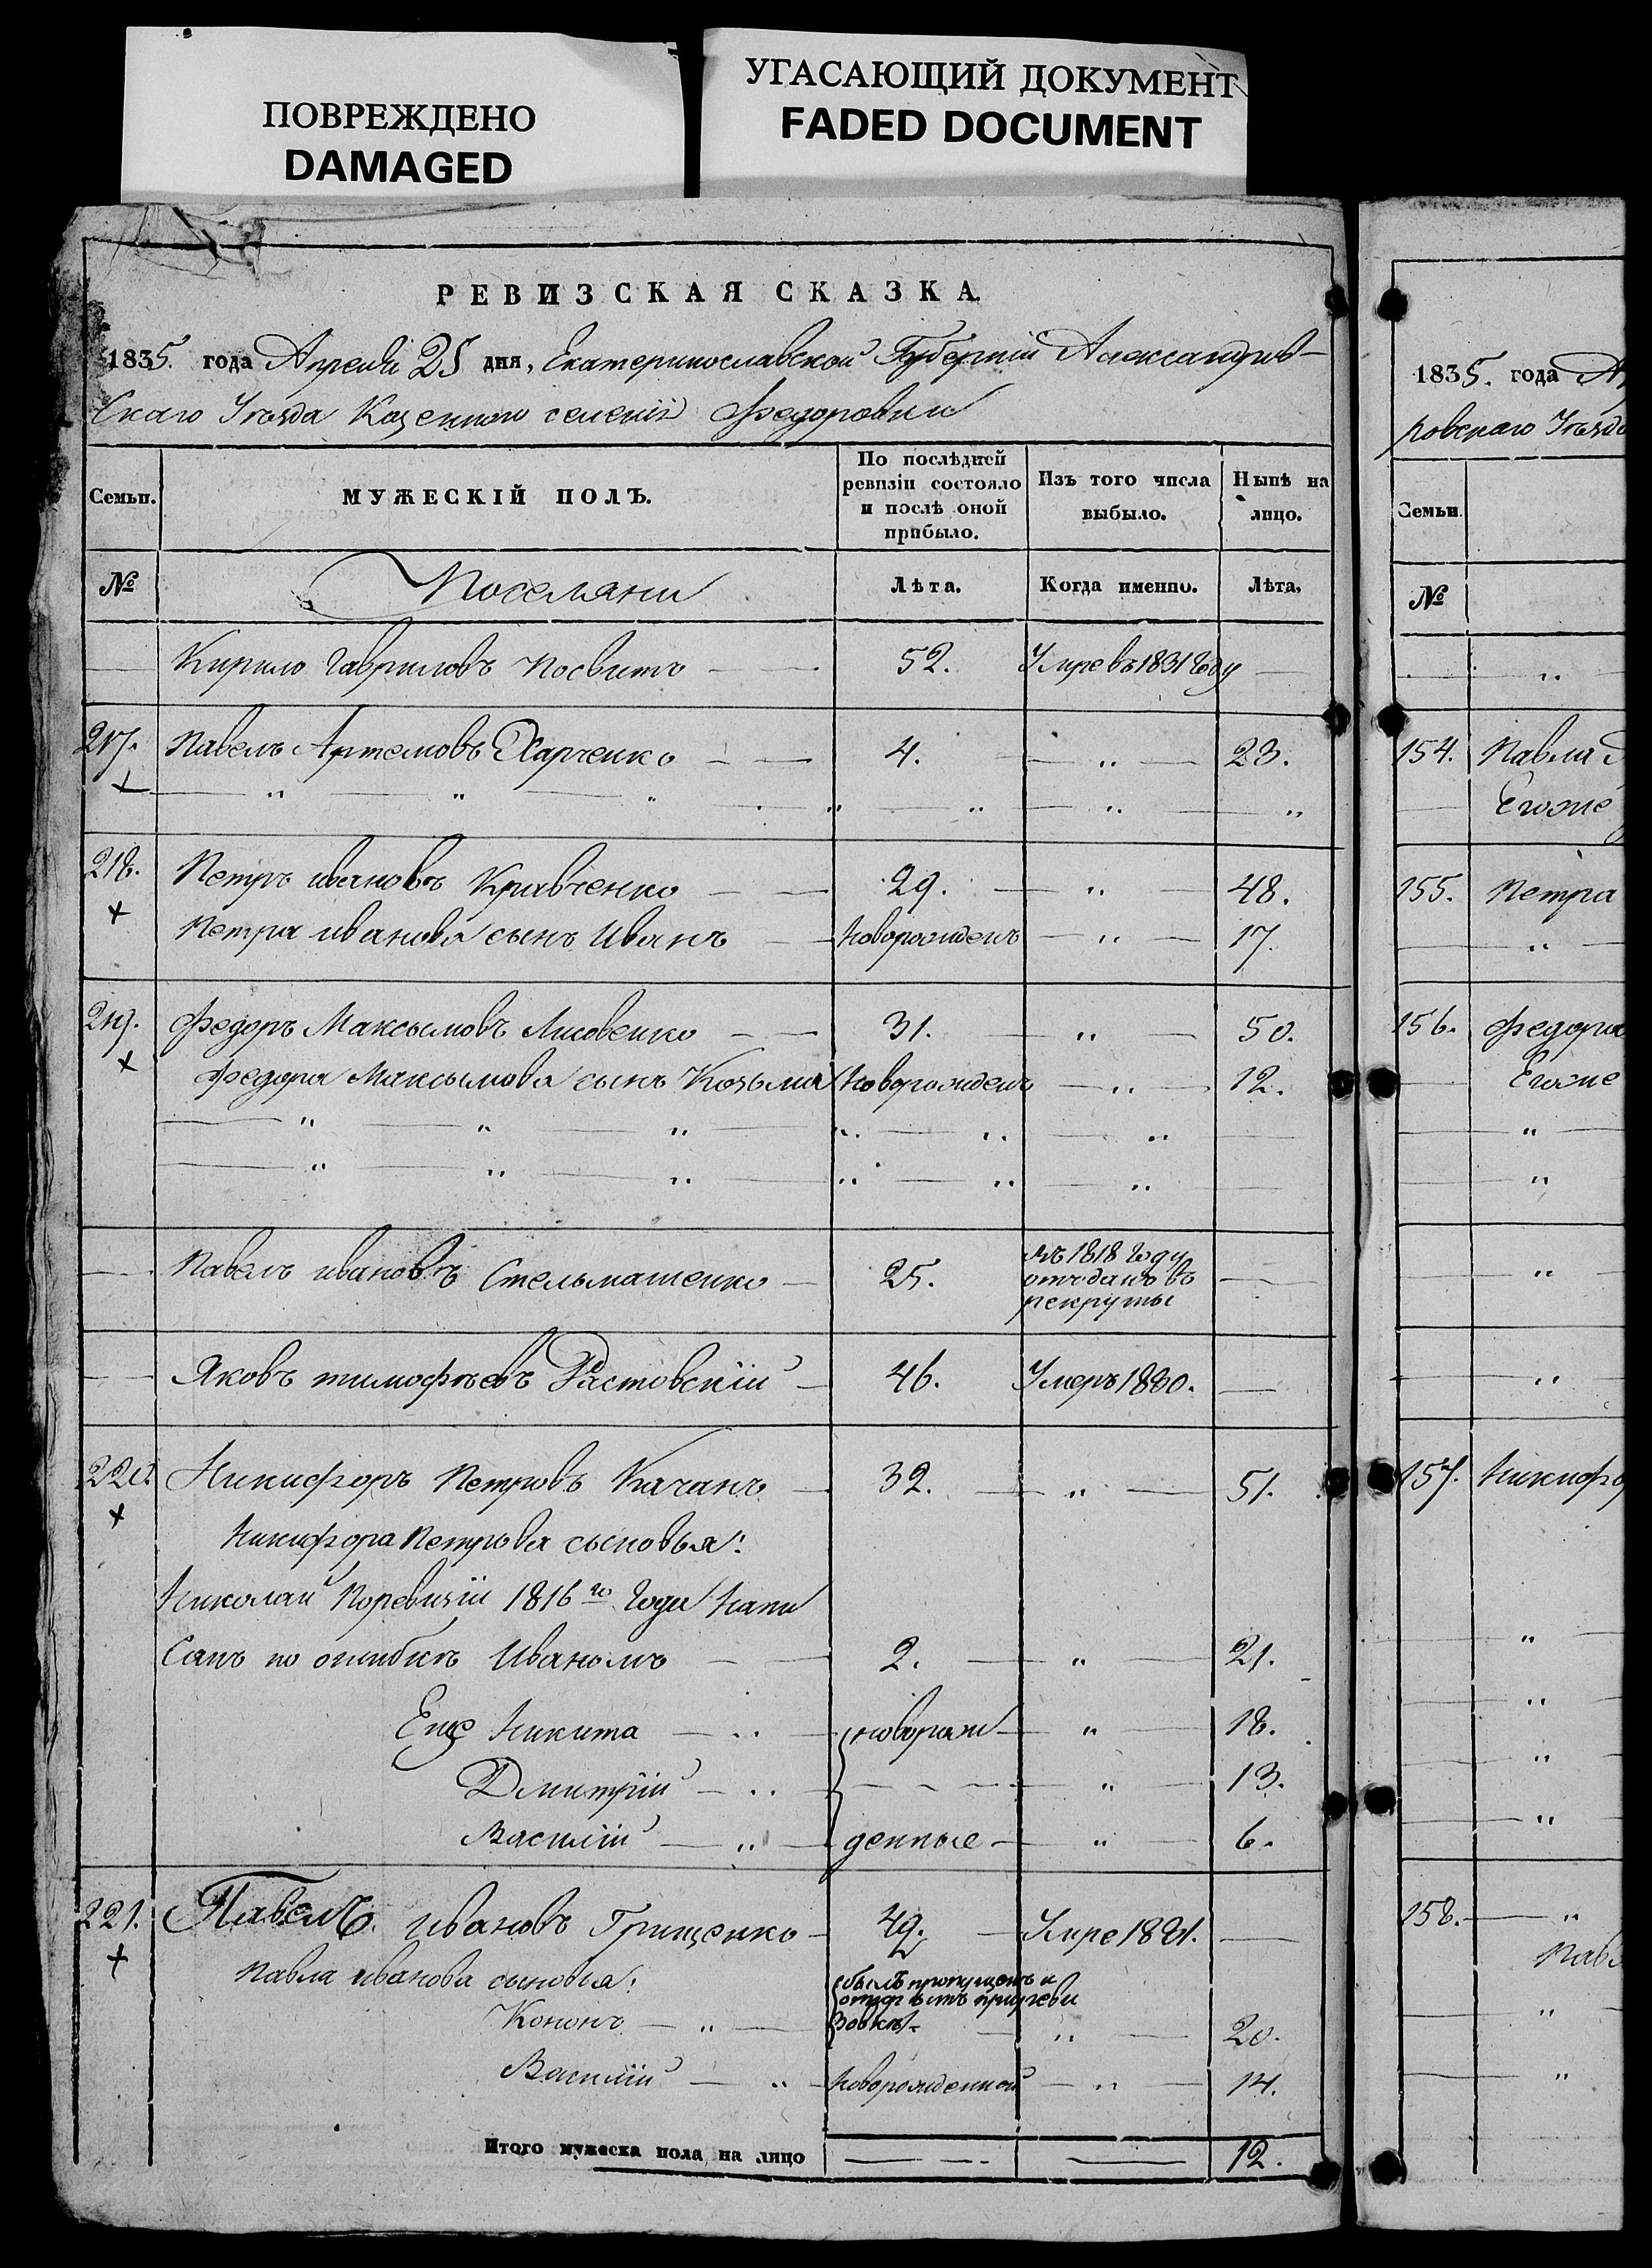 ПОВРЕЖДЕНО
DAMAGED
УГАСАЮЩИЙ ДОКУМЕНТ
FADED DOCUMENT
РЕВИЗСКАЯ СКАЗКА.
1835. года Апреля 25 дня, Екатеринославской Губернии Александров-
скаго Уезда Казеннаго селения Федоровки
Семьи.
МУЖЕСКІЙ ПОЛЪ.
По послѣдней ревизіи состояло и послѣ оной прибыло.
Изъ того числа выбыло.
Нынѣ на лицо.
№
Поселяни
Лѣта.
Когда именно.
Лѣта.
Кирило Гавриловъ Посвитъ 52. Умре въ 1831 году
217. Павелъ Артемовъ Харченко 4. 23.
218. Петръ ивановъ Кравченко 29. 48.
Петра иванова сынъ Иванъ новорожденъ 17.
219. Федоръ Максымовъ Лисовенко 31. 50.
Федора Максымова сынъ Козьма новорожденъ 12.
Павелъ ивановъ Стельмашенко 25. въ 1818 году
отъданъ въ
рекруты
Яковъ тимофѣевъ Растовскій 46. Умеръ 1830.
220. Никифоръ Петровъ Качанъ 32. 51.
Никифора Петрова сыновья:
Николай Поревизіи 1816го Года Напи
санъ по ошибкѣ Иваномъ 2. 21.
Еще Никита новорож 18.
Дмитрій 13.
Василій денные 6.
221. Павелъ ивановъ Грищенко 49. Умре 1821.
Павла иванова сыновья: былъ пропущенъ и
Кононъ 20.
Василій новорожденной 14.
Итого мужеска пола на лицо 12.
1835. года Ап
ровскаго Уезда
Семьи.
№
154. Павла
Егоже
155. Петра
156. Федора
Егоже
157. Никифо
158.
Павл